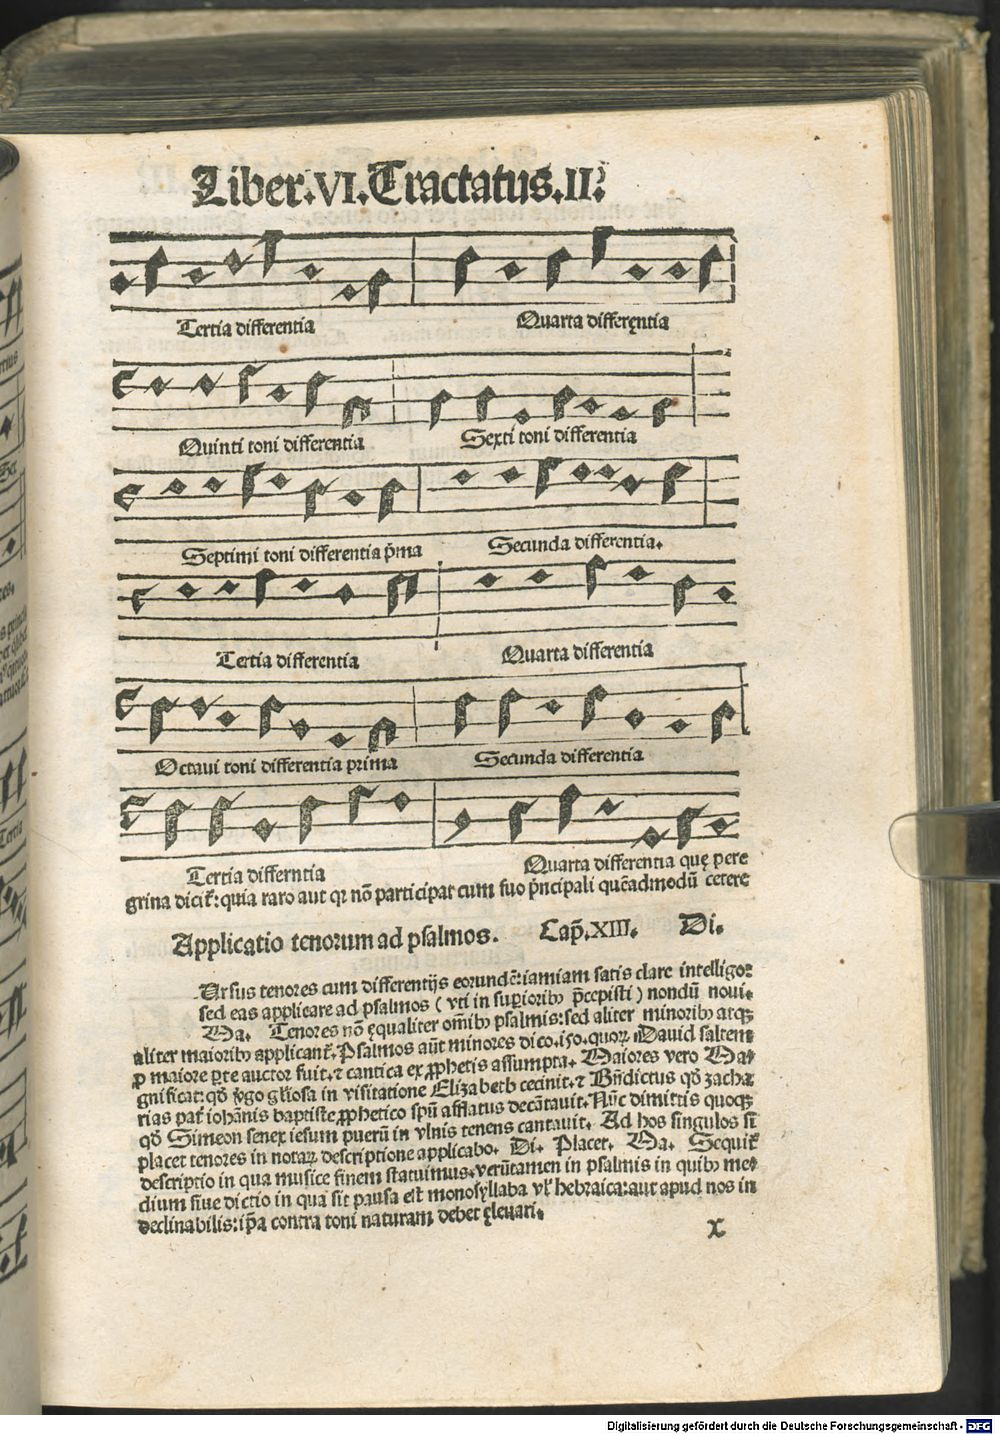 Liber.VI.Tractatus.II.
Tertia differentia Quarta differẹntia
Quinti toni differentia Sexti toni differentia
Septimi toni differentia p̃ma Secunda differentia.
Tertia differentia Quarta differentia
Octaui toni differentia prima Secunda differentia
Tertia differntia Quarta differentia quę pere
grina dicit̃: quia raro aut qꝛ nõ participat cum suo p̃ncipali quẽadmodũ cetere
Applicatio tenorum ad psalmos. Cap̃.XIII. Di.
Ursus tenores cum differentijs eorundẽ: iamiam satis clare intelligo:
sed eas applicare ad psalmos (vti in suꝑioribꝰ p̃cepisti) nondũ noui.
Ma. Tenores nõ ęqualiter om̃ibꝰ psalmis: sed aliter minoribꝰ atqꝫ
aliter maioribꝰ applicant̃. Psalmos aũt minores dico.150.quoꝝ Dauid saltem
ꝓ maiore ꝑte auctor fuit. ⁊ cantica ex ꝓphetis assumpta. Maiores vero Ma-
gnificat: qđ v̓go gl̓iosa in visitatione Elizabeth cecinit. ⁊ Bñdictus qđ zacha
rias pat̓ iohãnis baptiste ꝓphetico spũ afflatus decãtauit. Nũc dimittis quoqꝫ
qđ Simeon senex iesum puerũ in vlnis tenens cantauit. Ad hos singulos si
placet tenores in notaꝝ descriptione applicabo. Di. Placet. Ma. Sequit̃
descriptio in qua musice finem statuimus. verũtamen in psalmis in quibꝰ me-
dium siue dictio in qua sit pausa est monosyllaba vl̓ hebraica: aut apud nos in
declinabilis: ip̃a contra toni naturam debet ęleuari.
x
tius
Tertia
Digitalisierung gefördert durch die Deutsche Forschungsgemeinschaft - DFG